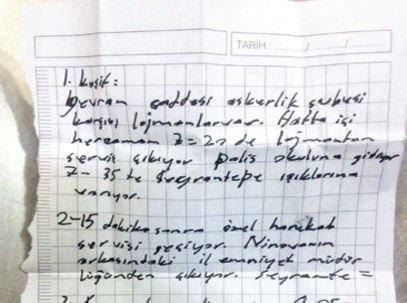 TARİH: / /
1. kişi:
Devran caddesi askerlik şubesi
karşısı lojmanlar var. Hafta içi
her zaman 7=20 de lojmandan
servis çıkıyor polis okuluna gidiyor
7-35 te Seyrantepe ışıklarına
varıyor.
2-15 dakika sonra özel harekat
servisi geçiyor. Ninovanın
arkasındaki il emniyet müdür
lüğünden çıkıyor. Seyrante =